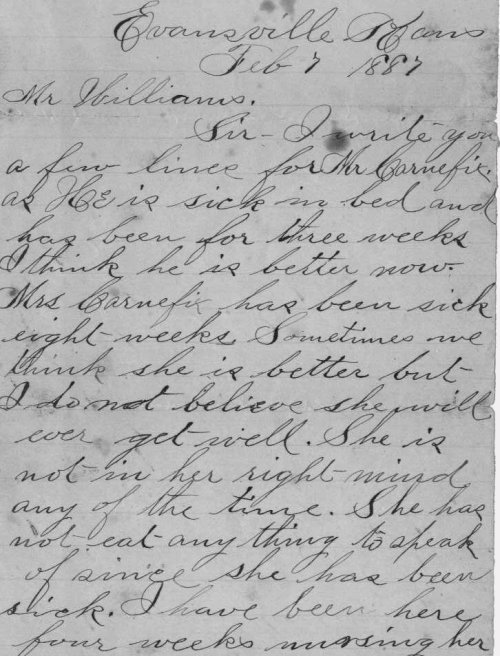 Evansville Kans
Feb 7 1887
Mr Williams.
Sir - I write you
a few lines for Mr Carnefix.
as HE is sick in bed and
has been for three weeks
I think he is better now.
Mrs Carnefix has been sick
eight weeks Sometimes we
think she is better but
I do not believe she will
ever get well. She is
not in her right mind
any of the time. She has
not eat any thing to speak
of since she has been
sick. I have been here
four weeks nursing her